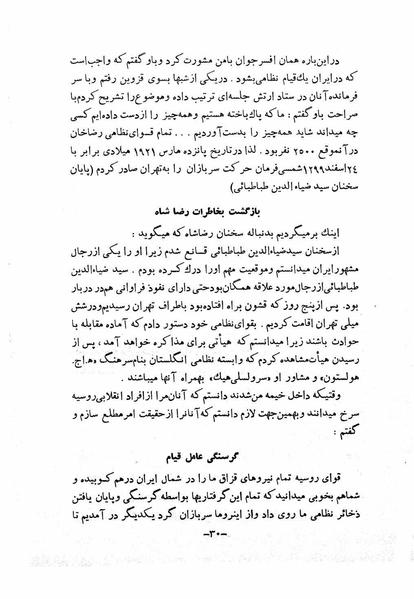 دراین‌باره همان افسر جوان بامن مشورت کرد و باو گفتم که واجب‌است
که در ایران یك‌قیام نظامی بشود . در یکی از شبها بسوی قزوین رفتم و با سر
فرمانده آنان در ستاد ارتش جلسه‌ای ترتیب داده و موضوع را تشریح کردم با
صراحت باو گفتم : ما که پاك باخته هستیم و همه‌چیز را از دست داده‌ایم کسی
چه میداند شاید همه‌چیز را بدست‌آوردیم . . . تمام قوای‌نظامی رضاخان
در آنموقع ۲۵۰۰ نفر بود . لذا در تاریخ پانزده مارس ۱۹۲۱ میلادی برابر با
۲۴اسفند۱۲۹۹شمسی‌فرمان حرکت سربازان را به‌تهران صادر کردم (پایان
سخنان سید ضیاء الدین طباطبائی)
بازگشت بخاطرات رضا شاه
اینك برمیگردیم بدنباله سخنان رضاشاه که میگوید :
از سخنان سیدضیاءالدین طباطبائی قانع شدم زیرا او را یکی از رجال
مشهور ایران میدانستم و موقعیت مهم اورا درك کرده بودم . سید ضیاءالدین
طباطبائی‌از رجال‌مورد علاقه همگان‌بودحتی دارای نفوذ فراوانی‌هم در دربار
بود. پس از پنج روز که قشون براه افتاده‌بود باطراف تهران رسیدیم ودرشش
میلی تهران اقامت کردیم . بقوای‌نظامی خود دستور دادم که آماده مقابله با
حوادث باشند زیرا میدانستم که هیأتی برای مذاکره خواهد آمد ، پس از
رسیدن هیأت‌مشاهده کردم که وابسته نظامی انگلستان بنام‌سرهنگ «ه.اج.
هولستون» و مشاور او «سرولسلی‌هیك» بهمراه آنها میباشند .
وقتیکه داخل خیمه می‌شدند دانستم که آنان‌مرا از افراد انقلابی‌روسیه
سرخ میدانند و بهمین‌جهت لازم دانستم که‌آنانرا از حقیقت امر مطلع سازم و
گفتم :
گرسنگی عامل قیام
قوای روسیه تمام نیروهای قزاق ما را در شمال ایران درهم‌کوبیده و
شماهم بخوبی میدانید که تمام این‌گرفتاریها بواسطه گرسنگی و پایان یافتن
ذخائر نظامی ما روی داد واز اینروما سربازان گرد یکدیگر در آمدیم تا
-۳۰-